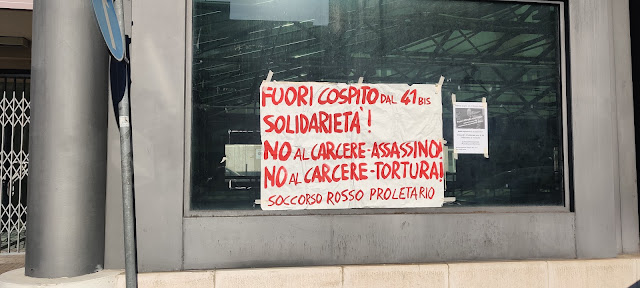 FUORI COSPITO DAL 41 BIS
SOLIDARIETÀ!
NO AL CARCERE-ASSASSINO!
NO AL CARCERE-TORTURA!
SOCCORSO ROSSO PROLETARIO